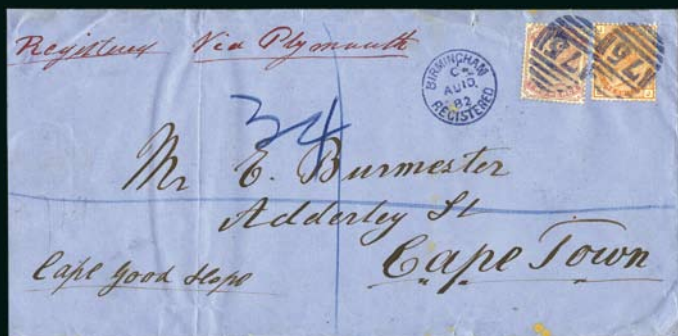 Registered Via Plymouth
BIRMINGHAM
C
AU 10
82
REGISTERED
75
76
34
Mr E. Burmester
Adderley St
Cape Town
Cape Good Hope